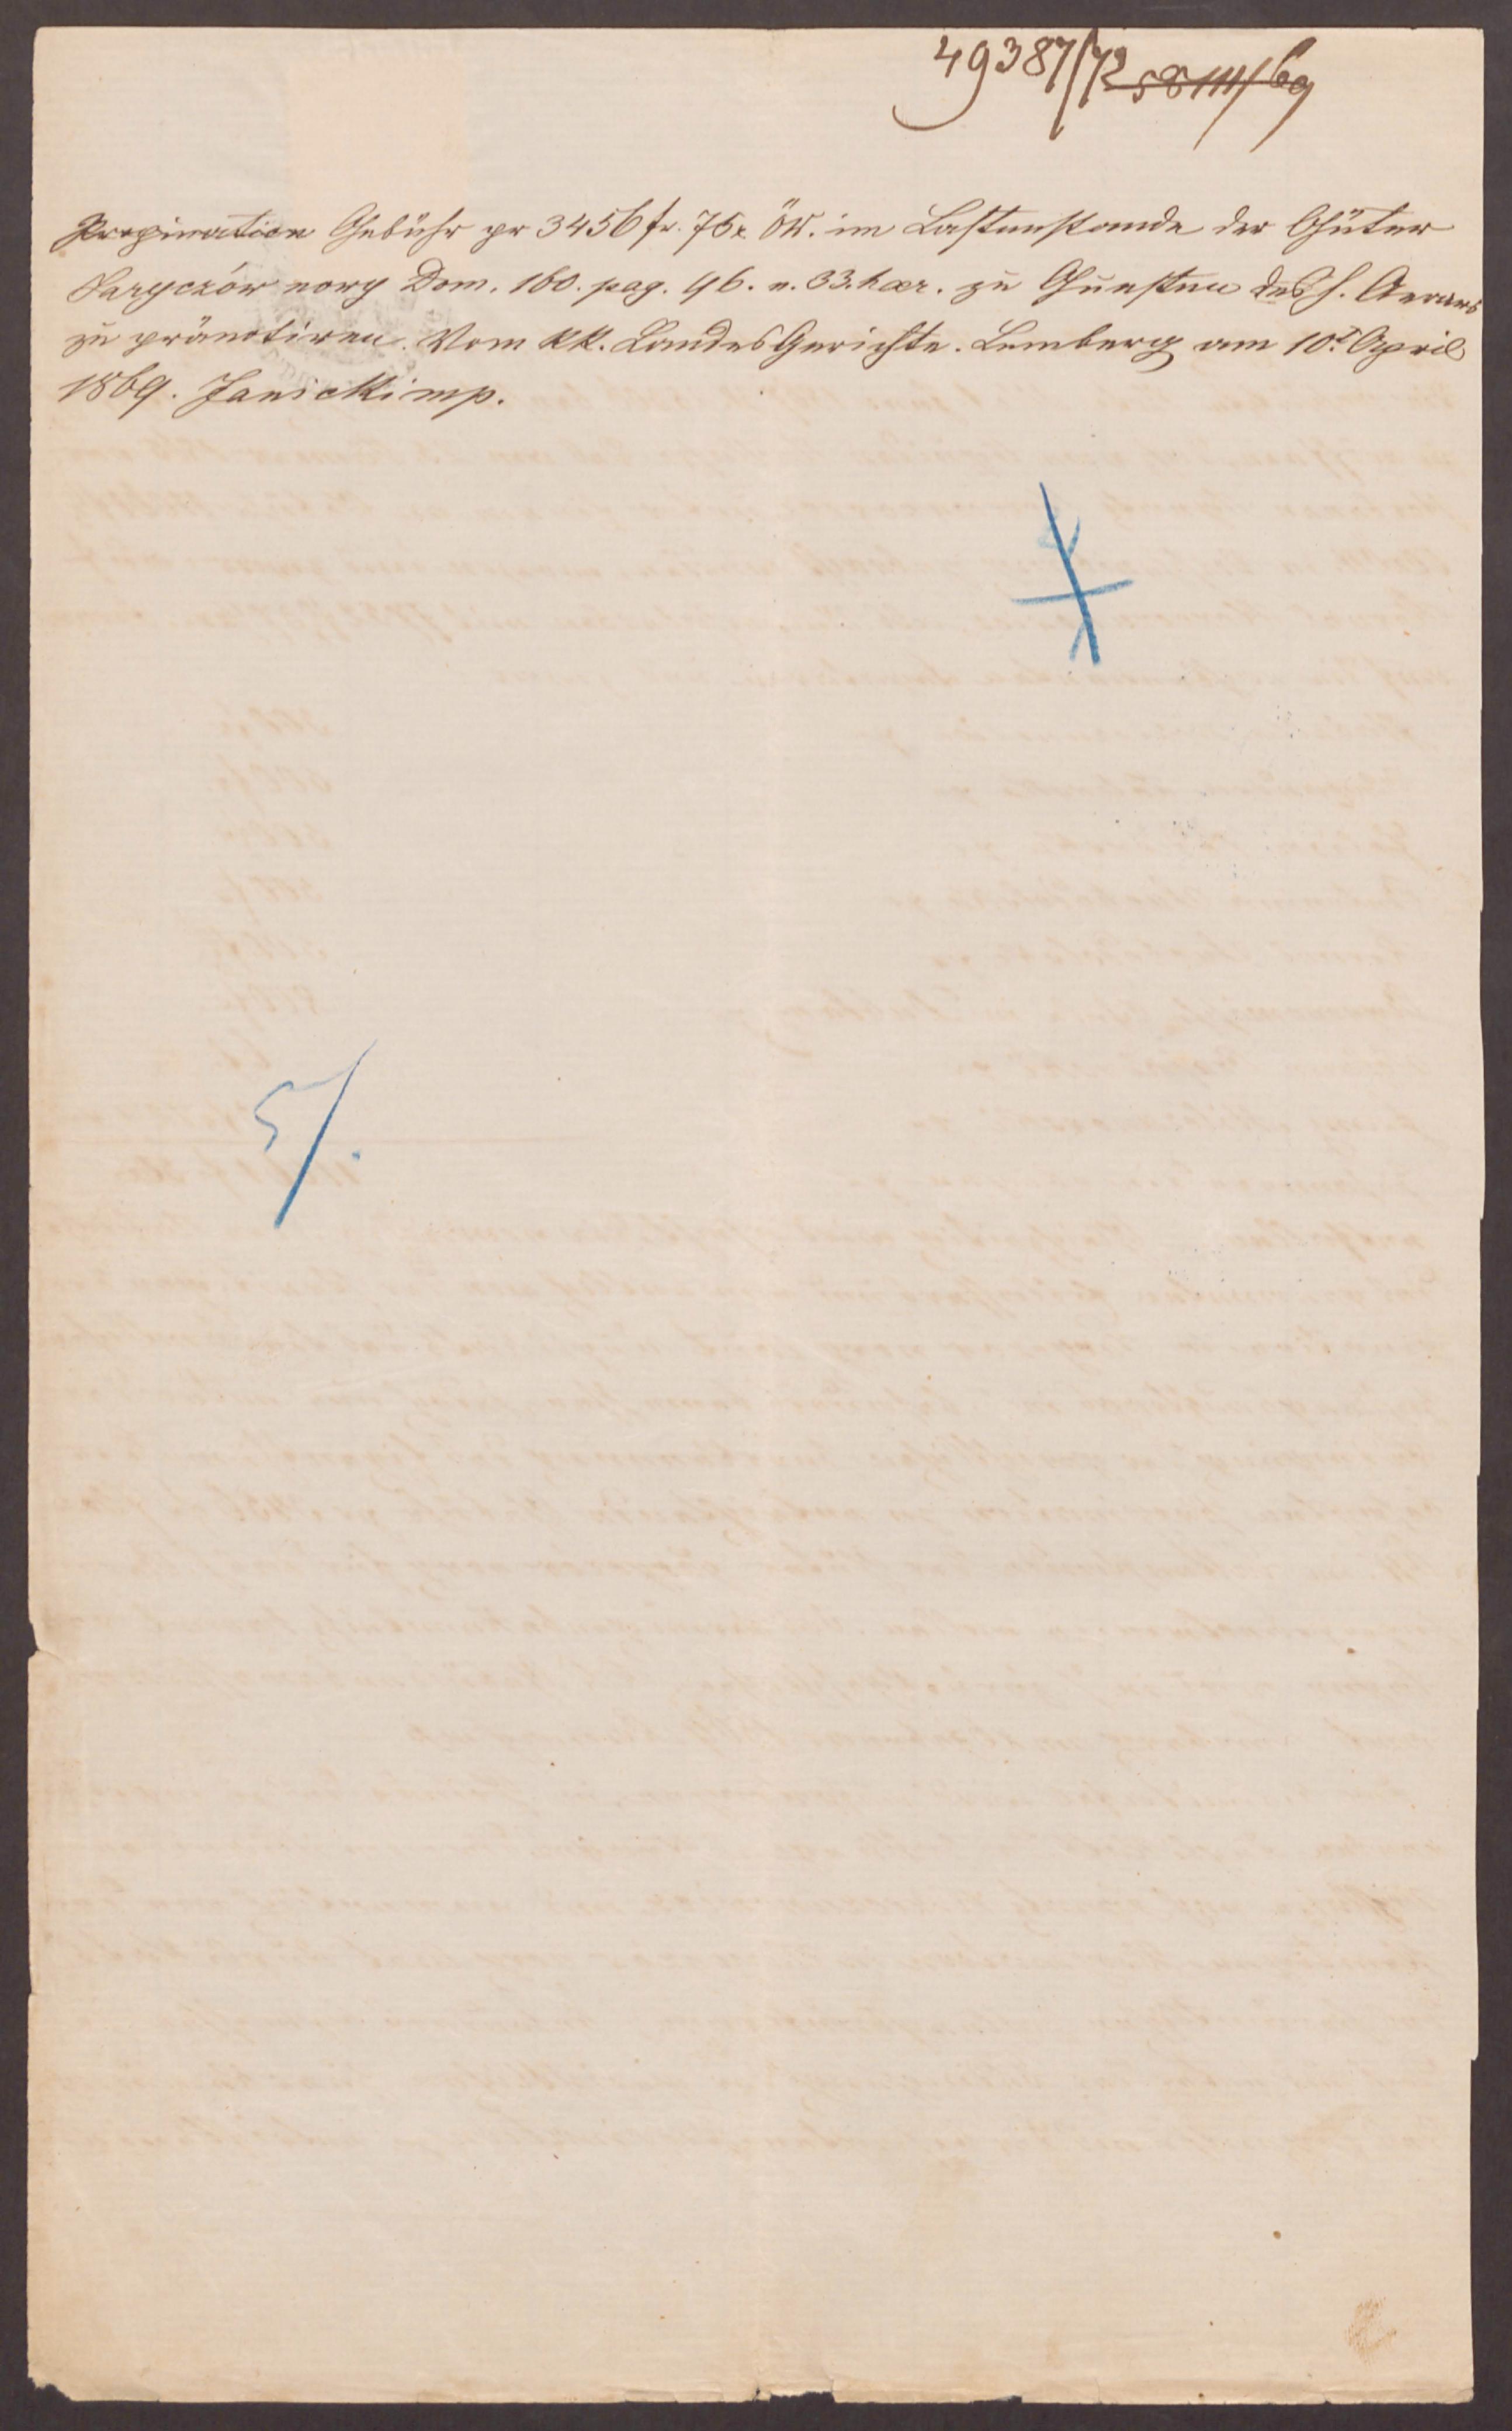 49387/72 58111/69
Propination Gebühr pr 3456 fr. 75 x ÖW. im Lastenstande der Güter
Jaryczów nowy Dom. 160. pag. 96. n. 33. haer. zu Gunsten des h. Aerars
zu pränotiren. Vom kk. Landes Gerichte. Lemberg am 10t April
1869. Janicki mp.
5/.